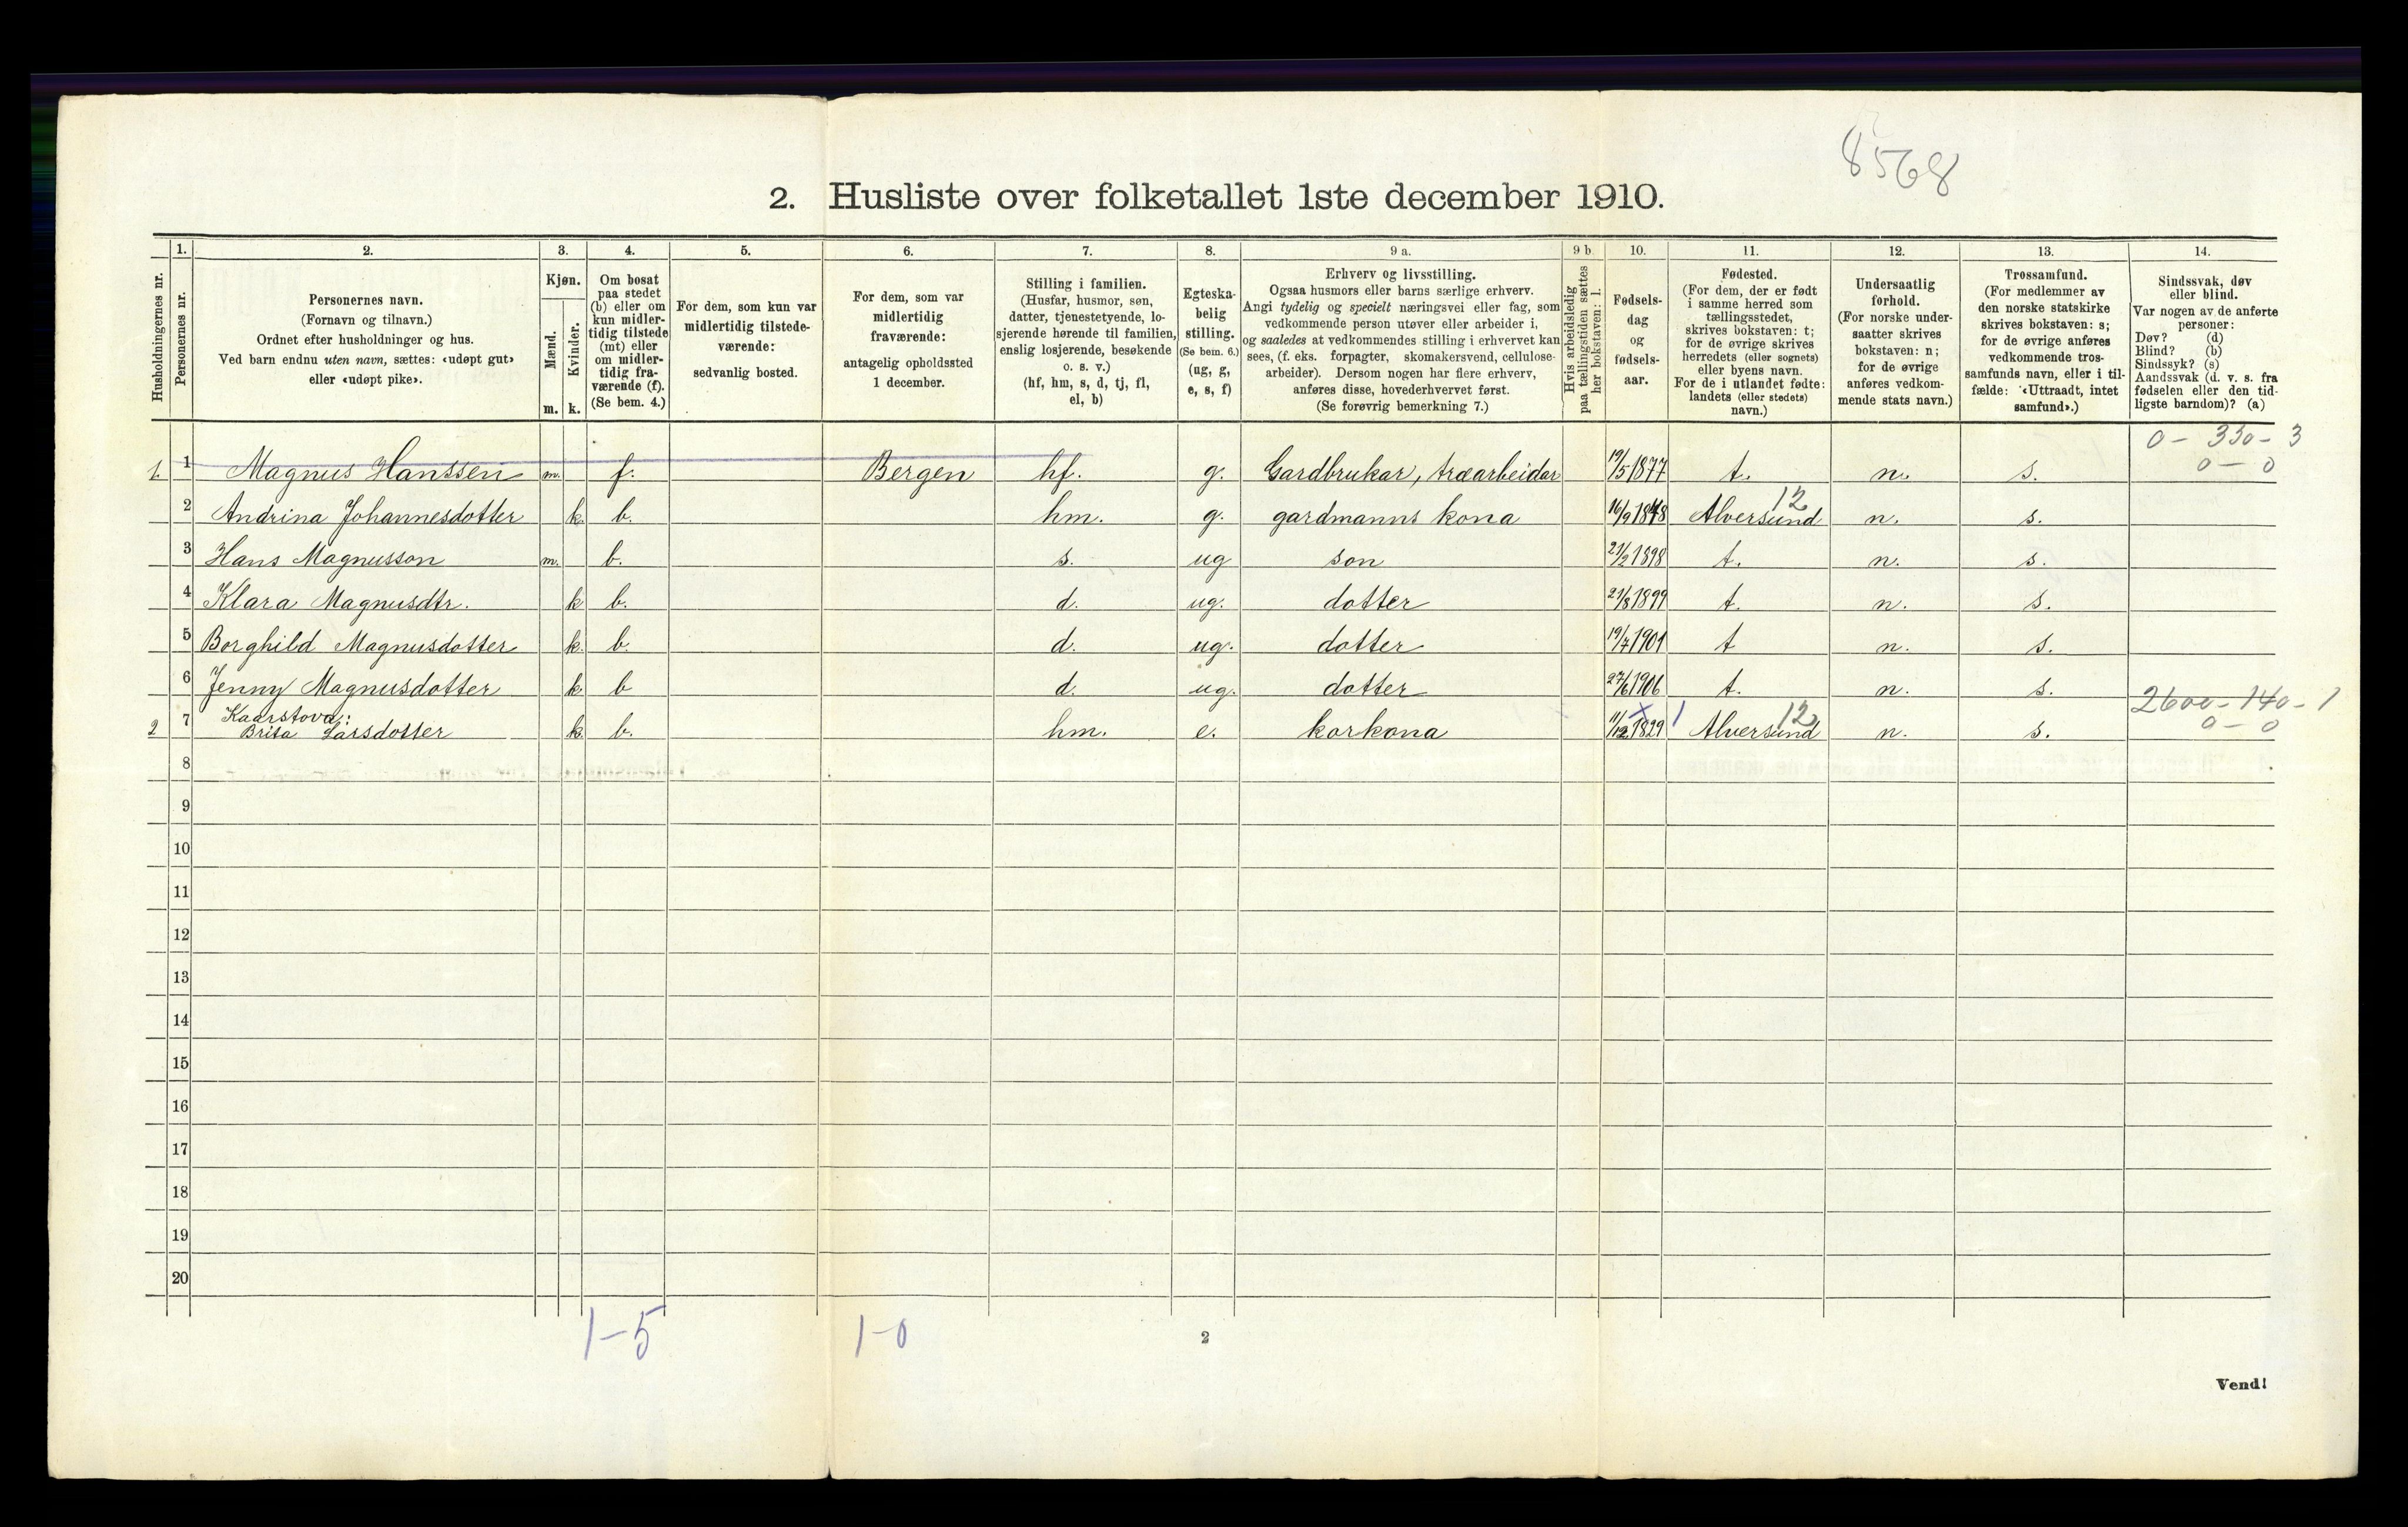 8568
2. Husliste over folketallet 1ste december 1910.
Husholdningernes nr.
1.
Personernes nr.
2.
Personernes navn.
(Fornavn og tilnavn.)
Ordnet efter husholdninger og hus.
Ved barn endnu uten navn, sættes: «udøpt gut»
eller «udøpt pike».
3.
Kjøn.
Mænd.
Kvinder.
m. k.
4.
Om bosat
paa stedet
(b) eller om
kun midler-
tidig tilstede
(mt) eller
om midler-
tidig fra-
værende (f).
(Se bem. 4.)
5.
For dem, som kun var
midlertidig tilstede-
værende:
sedvanlig bosted.
6.
For dem, som var
midlertidig
fraværende:
antagelig opholdssted
1 december.
7.
Stilling i familien.
(Husfar, husmor, søn,
datter, tjenestetyende, lo-
sjerende hørende til familien,
enslig losjerende, besøkende
o. s. v.)
(hf, hm, s, d, tj, fl,
el, b)
8.
Egteska-
belig
stilling.
(Se bem. 6.)
(ug, g,
e, s, f)
9 a.
Erhverv og livsstilling.
Ogsaa husmors eller barns særlige erhverv.
Angi tydelig og specielt næringsvei eller fag, som
vedkommende person utøver eller arbeider i,
og saaledes at vedkommendes stilling i erhvervet kan
sees, (f. eks. forpagter, skomakersvend, cellulose-
arbeider). Dersom nogen har flere erhverv,
anføres disse, hovederhvervet først.
(Se forøvrig bemerkning 7.)
9 b
Hvis arbeidsledig
paa tællingstiden sættes
her bokstaven: l.
10.
Fødsels-
dag
og
fødsels-
aar.
11.
Fødested.
(For dem, der er født
i samme herred som
tællingsstedet,
skrives bokstaven: t;
for de øvrige skrives
herredets (eller sognets)
eller byens navn.
For de i utlandet fødte:
landets (eller stedets)
navn.)
12.
Undersaatlig
forhold.
(For norske under-
saatter skrives
bokstaven: n;
for de øvrige
anføres vedkom-
mende stats navn.)
13.
Trossamfund.
(For medlemmer av
den norske statskirke
skrives bokstaven: s;
for de øvrige anføres
vedkommende tros-
samfunds navn, eller i til-
fælde: «Uttraadt, intet
samfund».)
14.
Sindssvak, døv
eller blind.
Var nogen av de anførte
personer:
Døv? (d)
Blind? (b)
Sindssyk? (s)
Aandssvak (d. v. s. fra
fødselen eller den tid-
ligste barndom)? (a)
0 - 330 - 3
0 - 0
1. 1 Magnus Hanssen m. f. Bergen hf. g. Gardbrukar, træarbeidar 19/5 1877 t. n. s.
12
2 Andrina Johannesdotter k. b. hm. g. gardmanns kona 16/9 Alversund n. s.
3 Hans Magnusson m. b. s. ug son 21/2 1898 t. n. s.
4 Klara Magnusdtr. k b. d. ug. dotter 21/8 1899 t. n. s.
5 Borghild Magnusdotter k. b. d. ug. dotter 19/7 1901 t n. s.
6 Jenny Magnusdotter k. b d. ug. dotter 27/6 1906 t. n. s.
2600 - 140 - 1
0 - 0
Kaarstova:
x 1 12
2 7 Brita Larsdotter k. b. hm. e. korkona 11/12 1829 Alversund n. s.
8
9
10
11
12
13
14
15
16
17
18
19
20
1-5 1-0
2
Vend!